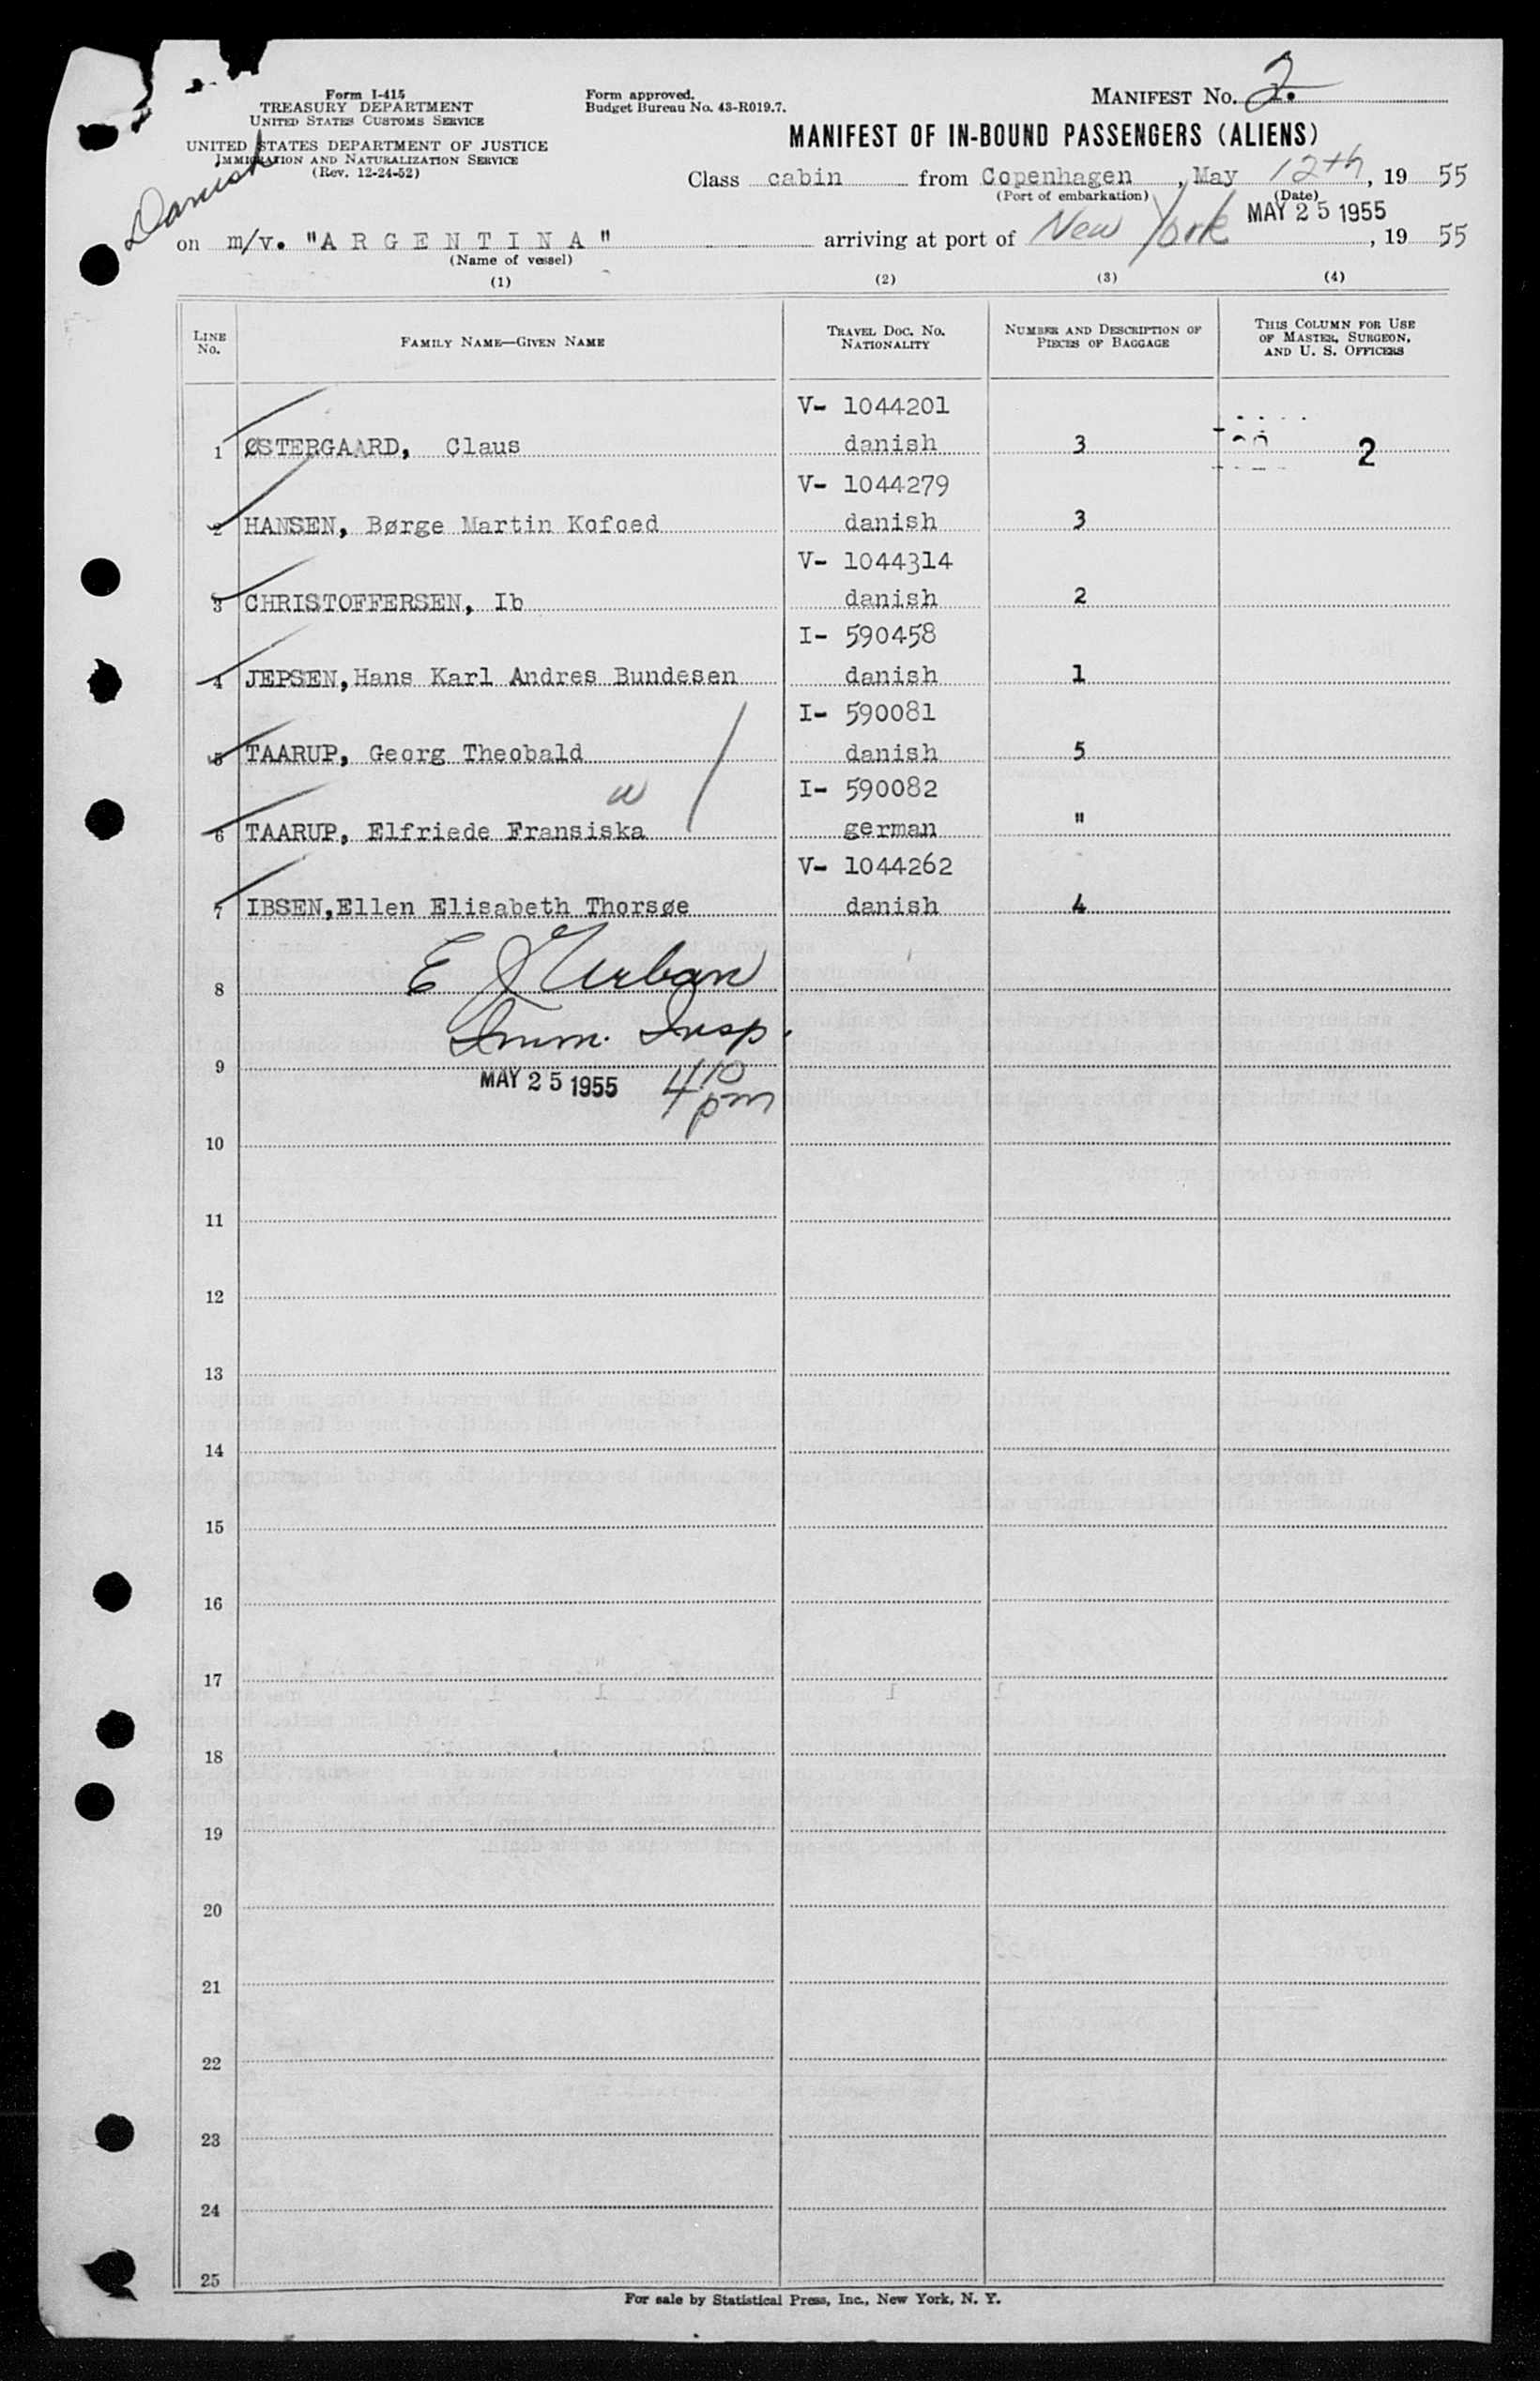 Form I-415
TREASURY DEPARTMENT
UNITED STATES CUSTOMS SERVICE
UNITED STATES DEPARTMENT OF JUSTICE
IMMIGRATION AND NATURALIZATION SERVICE
(Rev. 12-24-52)
Danish
Form approved.
Budget Bureau No. 43-R019.7.
MANIFEST NO. 2.
MANIFEST OF IN-BOUND PASSENGERS (ALIENS)
Class cabin from Copenhagen, May 12th, 19 55
(Port of embarkation) (Date)
MAY 25 1955
on m/v. "ARGENTINA" arriving at port of New York, 19 55
(Name of vessel)
(1) (2) (3) (4)
LINE NO. FAMILY NAME—GIVEN NAME TRAVEL DOC. NO. NATIONALITY NUMBER AND DESCRIPTION OF PIECES OF BAGGAGE THIS COLUMN FOR USE OF MASTER, SURGEON, AND U. S. OFFICERS
V- 1044201
1 ØSTERGAARD, Claus danish 3 2
V- 1044279
2 HANSEN, Børge Martin Kofoed danish 3
V- 1044314
3 CHRISTOFFERSEN, Ib danish 2
I- 590458
4 JEPSEN, Hans Karl Andres Bundesen danish 1
I- 590081
5 TAARUP, Georg Theobald danish 5
w I- 590082
6 TAARUP, Elfriede Fransiska german "
V- 1044262
7 IBSEN, Ellen Elisabeth Thorsøe danish 4
8 E J Urban
Imm. Insp.
9
MAY 25 1955 4 10 pm
10
11
12
13
14
15
16
17
18
19
20
21
22
23
24
25
For sale by Statistical Press, Inc., New York, N. Y.